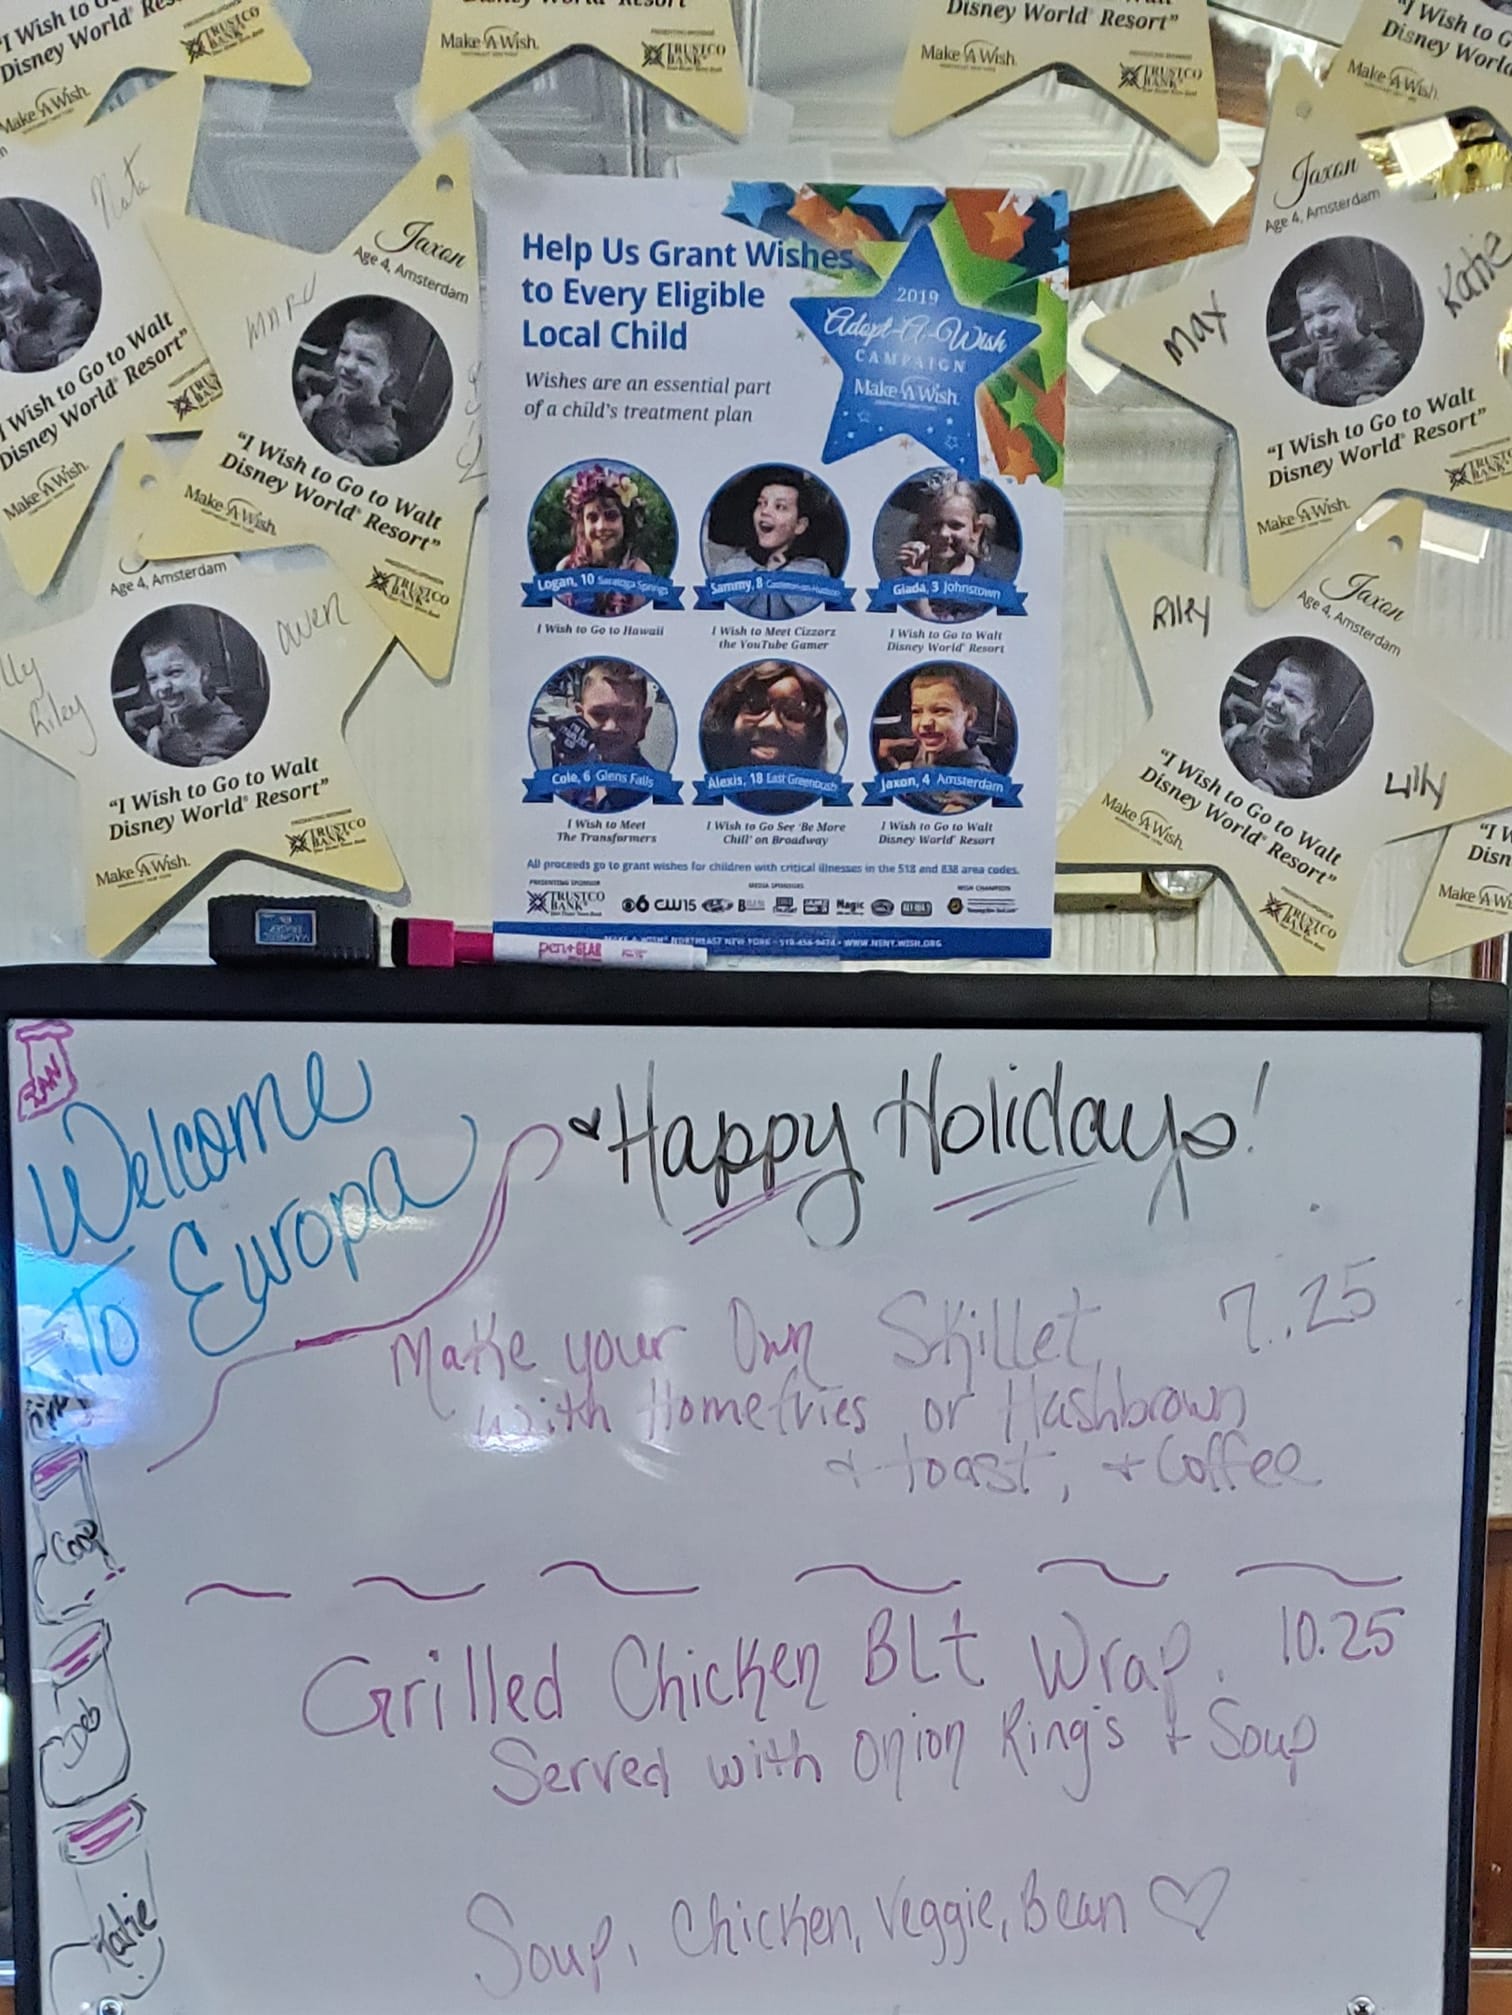 "I Wish to G
Disney World Res
Make-A-Wish.
TRUSTCO
BANK
Disney World® Resort"
Make-A-Wish.
PRESENTING SPONSOR
TRUSTCO
BANK
Your Home Town Bank
Disney World® Resort"
Make-A-Wish.
TRUSTCO
BANK
Your Home Town Bank
"I Wish to G
Disney World
Make-A-Wish.
I Wish to Go to Walt
Disney World® Resort"
Make-A-Wish.
TRUS
Jaxon
Age 4, Amsterdam
"I Wish to Go to Walt
Disney World® Resort"
Make-A-Wish.
TRUSTCO
BANK
Age 4, Amsterdam
Owen
lly
Riley
"I Wish to Go to Walt
Disney World® Resort"
Make-A-Wish.
PRESENTING SPONSOR
TRUSTCO
BANK
Your Home Town Bank
Help Us Grant Wishes
to Every Eligible
Local Child
Wishes are an essential part
of a child's treatment plan
2019
Adopt-A-Wish
CAMPAIGN
Make-A-Wish.
Logan, 10 Saratoga Springs
I Wish to Go to Hawaii
Sammy, 8 Castleton-on-Hudson
I Wish to Meet Cizzorz
the YouTube Gamer
Giada, 3 Johnstown
I Wish to Go to Walt
Disney World® Resort
Cole, 6 Glens Falls
I Wish to Meet
The Transformers
Alexis, 18 East Greenbush
I Wish to Go See 'Be More
Chill' on Broadway
Jaxon, 4 Amsterdam
I Wish to Go to Walt
Disney World® Resort
All proceeds go to grant wishes for children with critical illnesses in the 518 and 838 area codes.
PRESENTING SPONSOR
MEDIA SPONSORS
WISH CHAMPION
TRUSTCO
BANK
Your Home Town Bank
6
CW15
Magic
MAKE-A-WISH® NORTHEAST NEW YORK • 518-456-9474 • WWW.NENY.WISH.ORG
Jaxon
Age 4, Amsterdam
Max
Katie
"I Wish to Go to Walt
Disney World® Resort"
Make-A-Wish.
TRUSTCO
BANK
Jaxon
Age 4, Amsterdam
Riley
Lilly
"I Wish to Go to Walt
Disney World® Resort"
Make-A-Wish.
TRUSTCO
BANK
Your Home Town Bank
"I W
Disn
Make-A-Wi
pen+GEAR
Welcome
To Europa
Happy Holidays!
Make your Own Skillet, 7.25
with Homefries or Hashbrown
+ toast, + Coffee
Grilled Chicken BLt Wrap. 10.25
Served with Onion Ring's + Soup
Soup, Chicken, Veggie, Bean
Deb
Katie